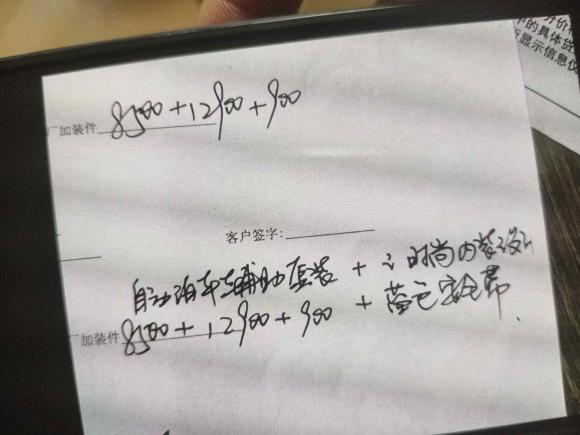 分价格
中的具体货
示显示信息仅
厂加装件 8500+12900+900
客户签字:
自动泊车辅助套装 + i时尚内装设计
厂加装件 8500+12900+900 + 蓝色安全带